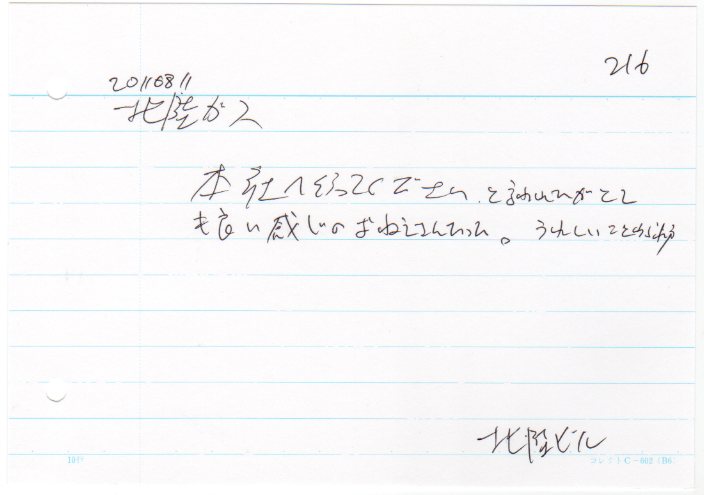 216
20110811
北陸ガス
本社へ行って下さい と言われたがとて
も良い感じのおねえさんだった。 うれしいこと
北陸ビル
10行 コレクト C-602 (B6)